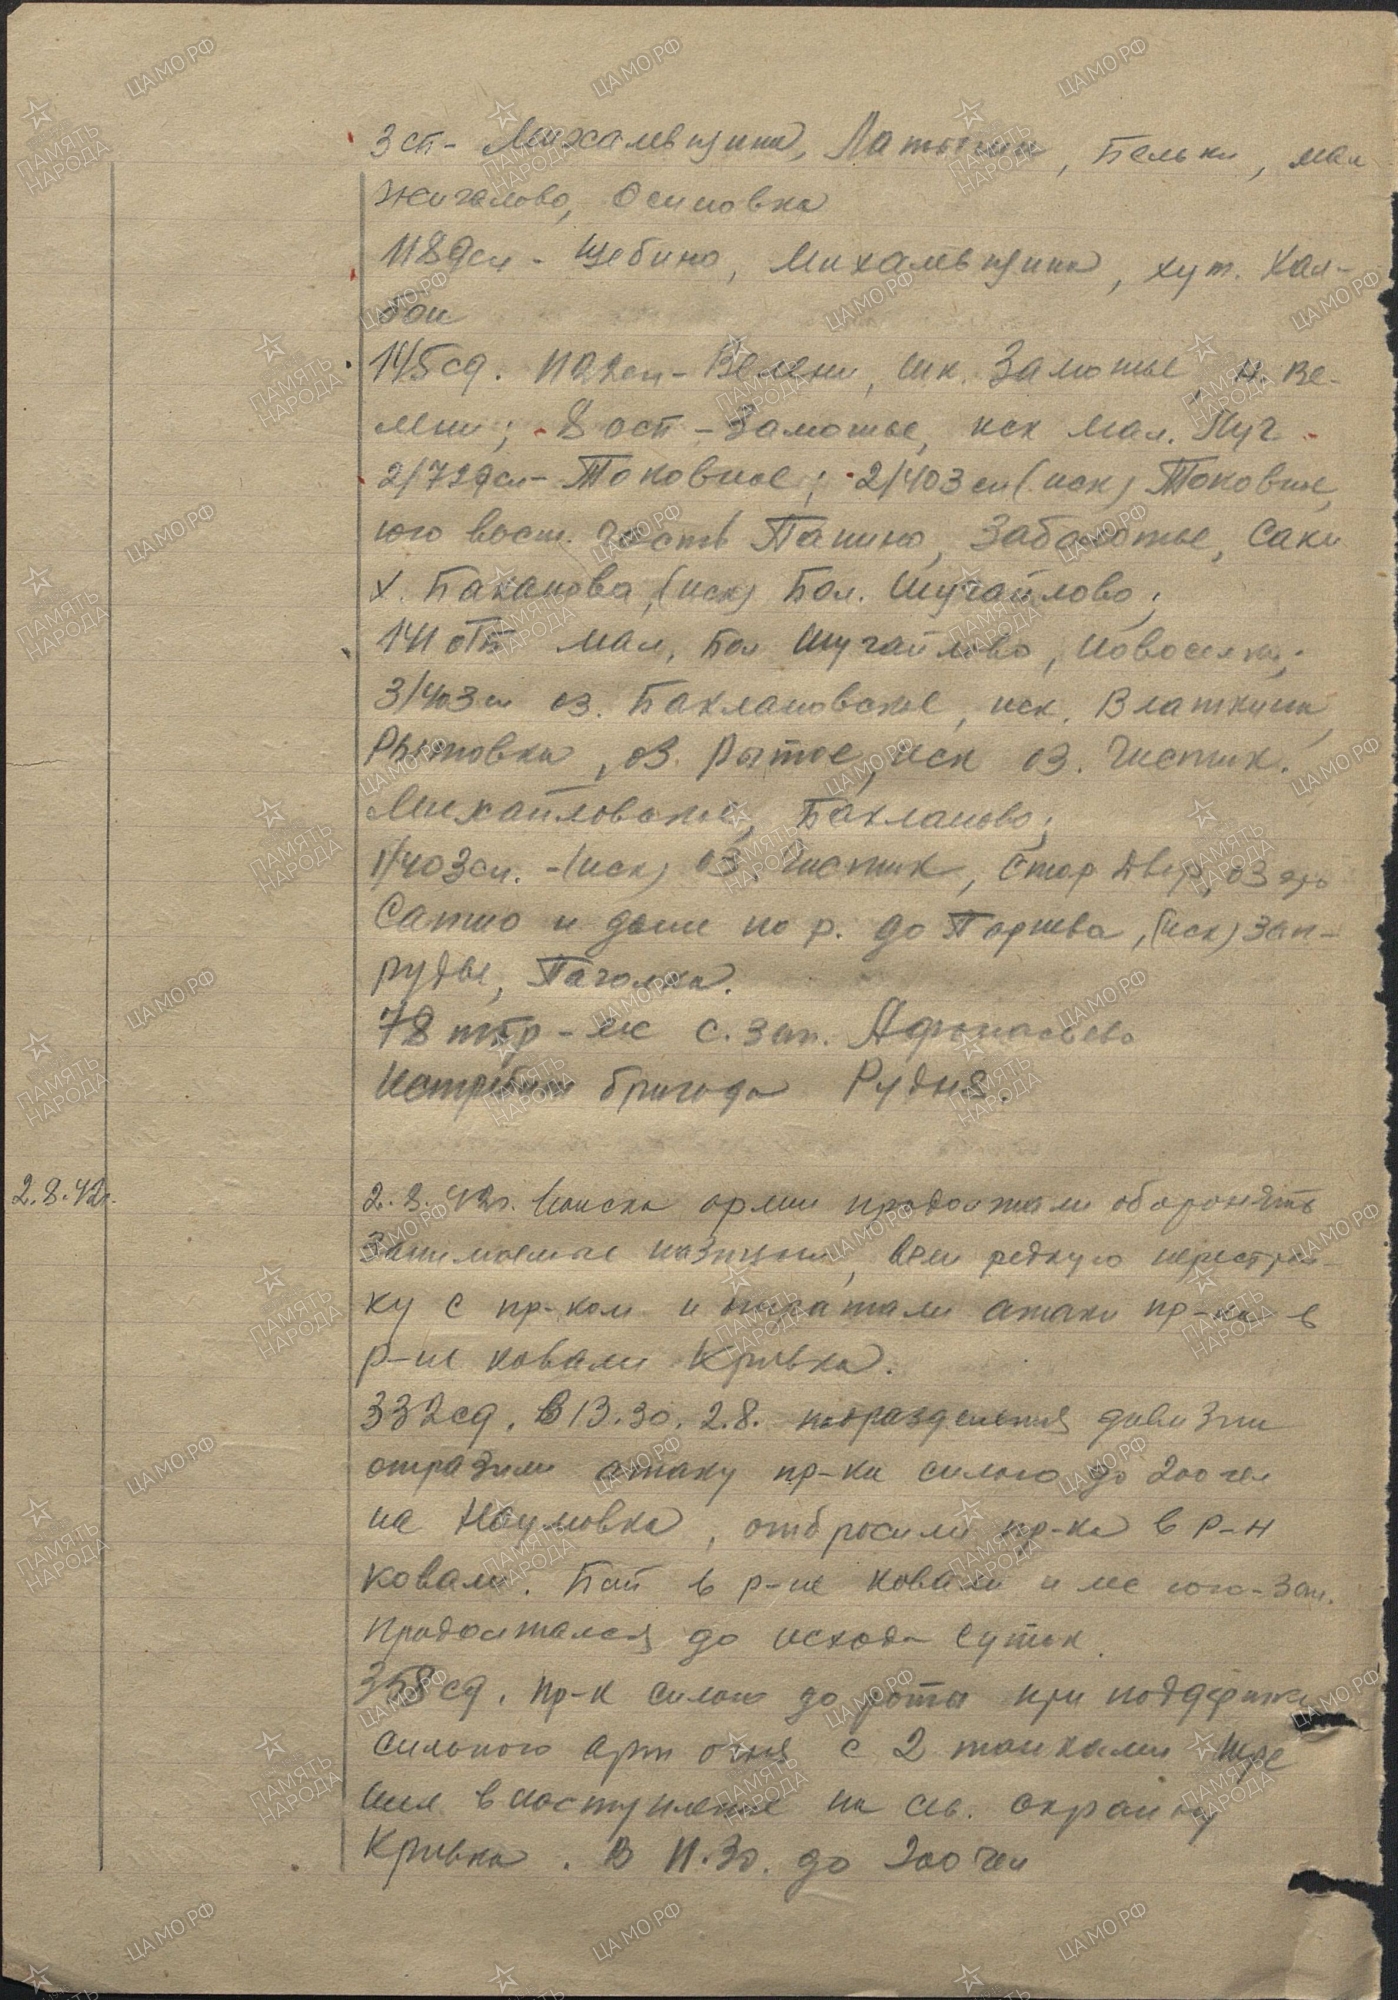 3 сп - Михалевщина, Латыши, Бельки, мал
Жигалово, Осиповка
1189 сп - Щебино, Михалевщина, хут. Кол-
бои
145 сд. 1122 сп - Велени, иск. Замотье, н. Ве-
лени; 8 осп - Замотье, иск мал. Луч
2/729 сп - Токовное; 2/403 сп (иск) Токовное,
юго вост. часть Панино, Заболотье, Саки
х. Баканова, (иск) Бол. Шугайлово;
141 отб мал, бол Шугайлово, Новоселки;
3/403 сп оз. Баклановское, иск. Влаткина
Рытовка, оз. Рытое, иск оз. Чистик.
Михайловское, Бакланово;
1/403 сп. - (иск) оз. Чистик, Стар Двор, оз
Сапшо и далее по р. до Поржва, (иск) Зап-
рудье, Пачолка.
78 тбр - лес с. зап. Афанасьево
Истребит бригада Рудня.
2.8.42г.
2.8.42г. Войска армии продолжали оборонять
занимаемые позиции, вели редкую перестрел-
ку с пр-ком и отражали атаки пр-ка в
р-не Ковали Кривка.
332 сд. В 13.30. 2.8. подразделения дивизии
отразили атаку пр-ка силою до 200 чел
на Наумовка, отбросили пр-ка в р-н
Ковали. Бой в р-не Ковали и лес юго-зап.
продолжался до исхода суток.
358 сд. Пр-к силою до роты при поддержке
сильного арт огня с 2 танками пре
шел в наступление на сев. окраину
Кривка. В 11.30. до 200 чел
ЦАМО.РФ
ПАМЯТЬ НАРОДА